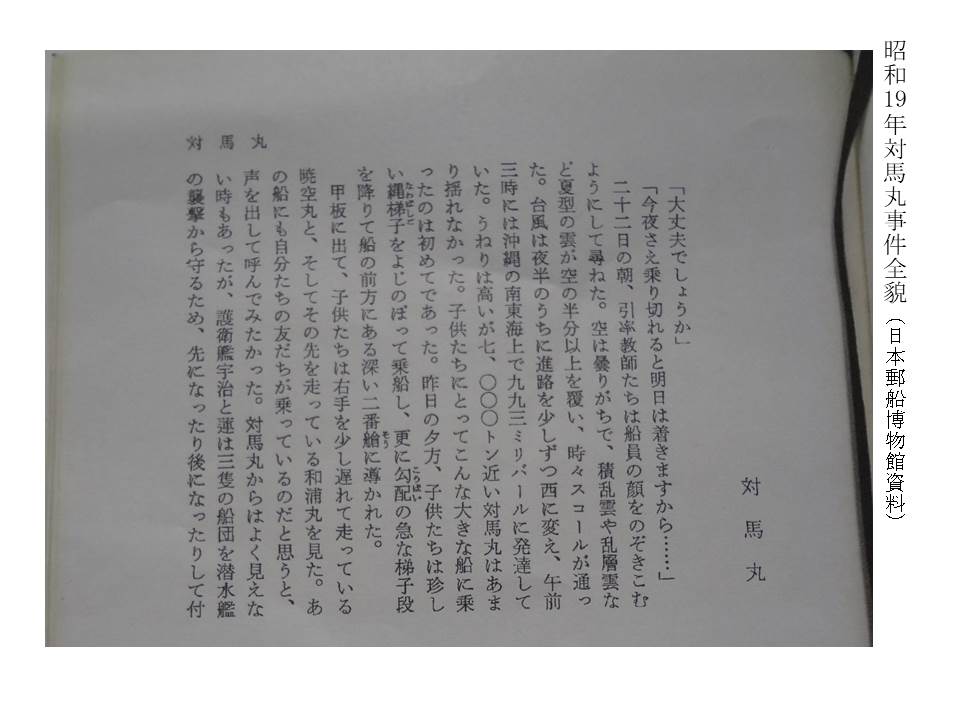 昭和19年対馬丸事件全貌（日本郵船博物館資料）
対馬丸
「大丈夫でしょうか」
「今夜さえ乗り切れると明日は着きますから……」
二十二日の朝、引率教師たちは船員の顔をのぞきこむ
ようにして尋ねた。空は曇りがちで、積乱雲や乱層雲な
ど夏型の雲が空の半分以上を覆い、時々スコールが通っ
た。台風は夜半のうちに進路を少しずつ西に変え、午前
三時には沖縄の南東海上で九九三ミリバールに発達して
いた。うねりは高いが七、〇〇〇トン近い対馬丸はあま
り揺れなかった。子供たちにとってこんな大きな船に乗
ったのは初めてであった。昨日の夕方、子供たちは珍し
い縄梯子をよじのぼって乗船し、更に勾配の急な梯子段
なわばしご
こうばい
を降りて船の前方にある深い二番艙に導かれた。
そう
甲板に出て、子供たちは右手を少し遅れて走っている
暁空丸と、そしてその先を走っている和浦丸を見た。あ
の船にも自分たちの友だちが乗っているのだと思うと、
声を出して呼んでみたかった。対馬丸からはよく見えな
い時もあったが、護衛艦宇治と蓮は三隻の船団を潜水艦
の襲撃から守るため、先になったり後になったりして付
対馬丸